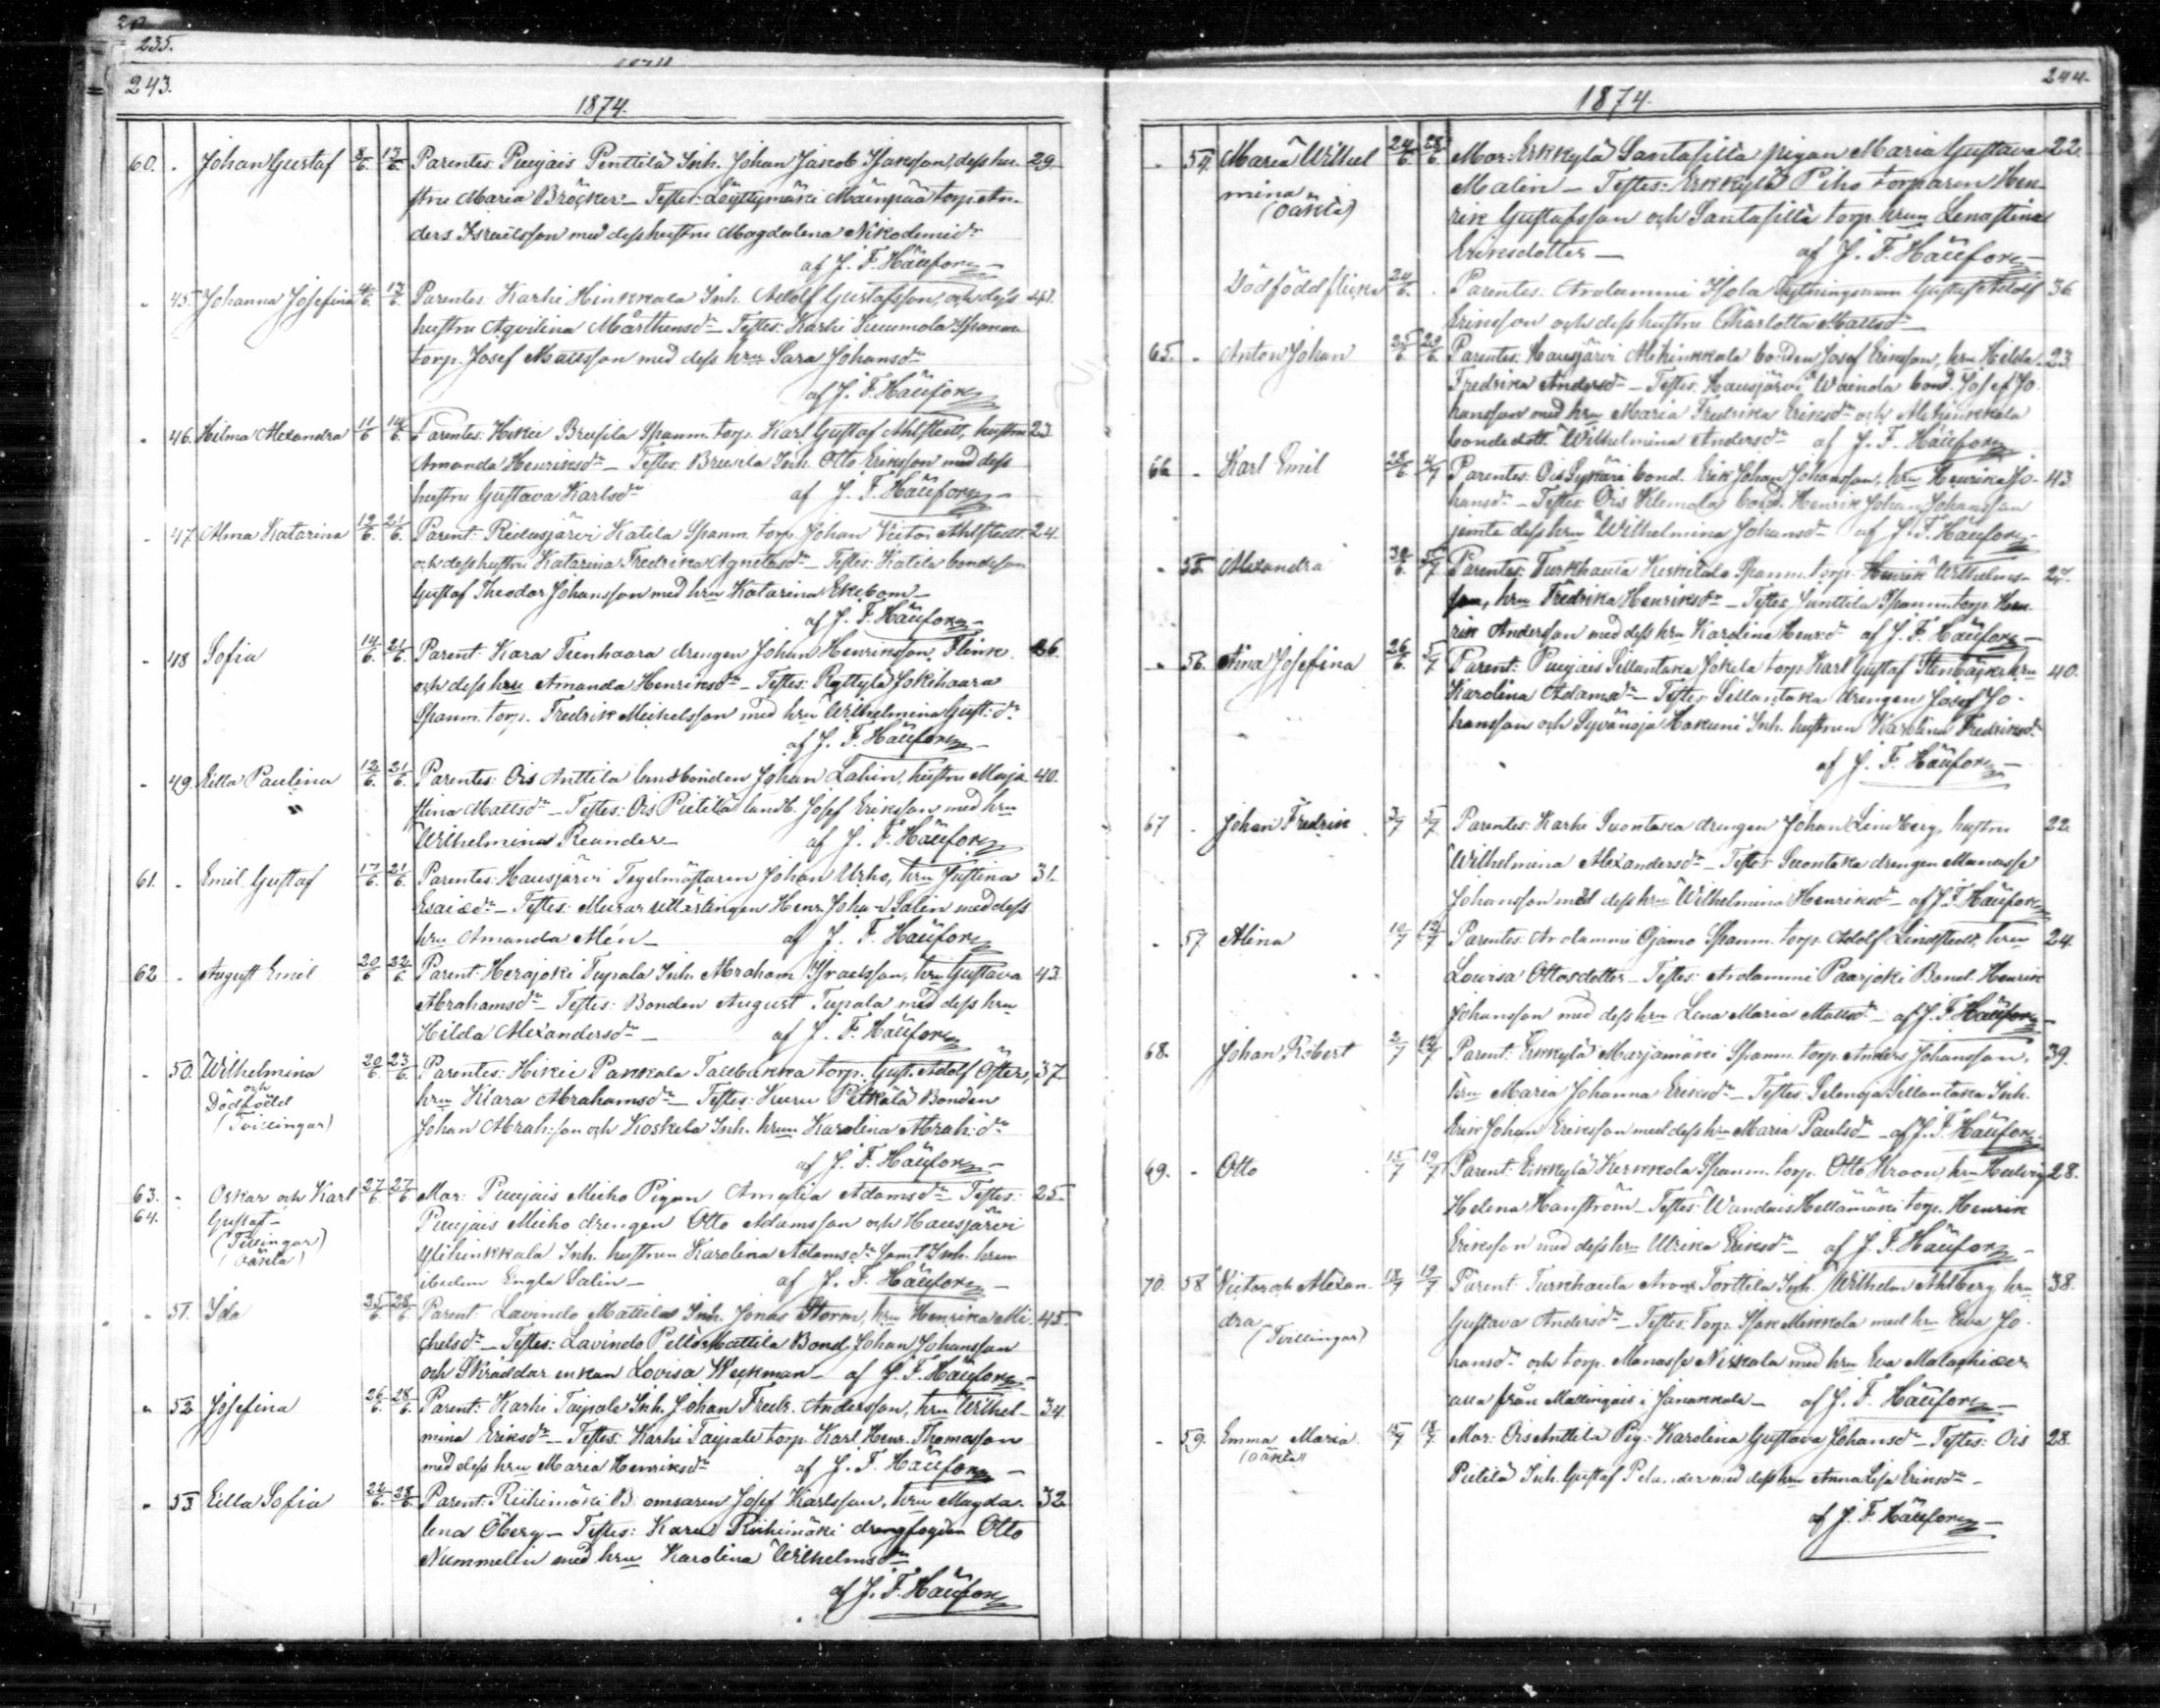 235.
243.
1874.
60. - Johan Gustaf 8/6 13/6 Parentes: Puujais Penttilä Inh. Johan Jakob Isaksson, dess hu- 29.
stru Maria Bröcker - Testes: Löyttymäki Mäenpää torp. An-
ders Israelsson med dess hustru Magdalena Nikodemid:r
af J. F. Häuforn
- 45. Johanna Josefina 4/6 13/6 Parentes: Karhi Hinkkala Inh. Adolf Gustafsson, och dess 41.
hustru Aqvilina Mårthensd:r - Testes: Karhi
torp. Josef Mattsson med dess hru Sara Johansd:r
af J. F. Häuforn
- 46. Hilma Alexandra 11/6 14/6 Parentes: Hikiä Spanm. torp. Karl Gustaf Ahlstedt, hustru 23
Amanda Henriksd:r - Testes: Inh. Otto Eriksson med dess
hustru Gustava Karlsd:r af J. F. Häuforn
- 47. Alma Katarina 19/6 21/6 Parent: Ridasjärvi Katila Spanm. torp. Johan Victor Ahlstedt 24.
och dess hustru Katarina Fredrika Agnetasd:r - Testes: Katila bondeson
Gustaf Theodor Johansson med hru Katarina Ekebom -
af J. F. Häuforn
- 48 Sofia 14/6 21/6 Parent: Kara Tienhaara drengen Johan Henriksson Flink 26.
och dess hru Amanda Henriksd:r - Testes: Ryttylä Jokihaara
Spanm. torp. Fredrik Michelsson med hru Wilhelmina Gust:d:r
af J. F. Häuforn
- 49. Eilla Paulina 12/6 21/6 Parentes: Ois Anttila landbonden Johan Lahin, hustru Maja 40.
stina Mattsd:r - Testes: Ois Pietilä landb. Josef Eriksson med hru
Wilhelmina Reander - af J. F. Häuforn
61. - Emil Gustaf 17/6 21/6 Parentes: Hausjärvi Tegelmästaren Johan Urho, hru Justina 31.
Esaiæd:r - Testes: Murar Henr. Johan Salin med dess
hru Amanda Alén - af J. F. Häuforn
62 - August Emil 20/6 22/6 Parent: Herajoki Tupala Inh. Abraham Israelsson, hru Gustava 43.
Abrahamsd:r - Testes: Bonden August Tupala med dess hru
Hilda Alexandersd:r - af J. F. Häuforn
- 50. Wilhelmina 20/6 23/6 Parentes: Hikiä Pakkala torp. Gust. Adolf Öster, 37.
och hru Klara Abrahamsd:r - Testes: Kuru Bonden
Dödfödd Johan Abrah:son och Koskela Inh. hrun Karolina Abrah:d:r
(Tvillingar) af J. F. Häuforn
63. - Oskar och Karl 27/6 27/6 Mor: Puujais Micho Pigan Amalia Adamsd:r Testes: 25
64. Gustaf - Puujais Micho drengen Otto Adamsson och Hausjärvi
(Tvillingar) Ylihinkkala Inh. hustrun Karolina Adamsd:r samt Inh. hrun
(oäkta) ibidem Engla Salin - af J. F. Häuforn
- 51. Ida 25/6 28/6 Parent: Lavinto Mattila Inh. Jonas Storm, hru Henrika Mi- 45.
chelsd:r - Testes: Lavinto Mattila Bond. Johan Johansson
och Skräddar enkan Lovisa Weckman - af J. F. Häuforn
- 52 Josefina 26/6 28/6 Parent: Karhi Taipale Inh. Johan Fredr. Andersson, hru Wilhel- 34.
mina Eriksd:r - Testes: Karhi Taipale torp. Karl Henr. Thomasson
med dess hru Maria Henriksd:r af J. F. Häuforn
- 53 Eilla Sofia 22/6 28/6 Parent: Riihimäki Josef Karlsson, hru Magda- 32
lena Öberg - Testes: Kara Riihimäki drengfogden Otto
Nummelin med hru Karolina Wilhelmsd:r
af J. F. Häuforn
244.
1874.
- 54. Maria Wilhel 24/6 28/6 Mor: Erkkylä Santasilla pigan Maria Gustava 22.
mina Malin - Testes: Erkkylä Piho torparen Hen-
(oäkta) rik Gustafsson och Santasilla torp. hrun Lenastina
Eriksdotter - af J. F. Häuforn
Dödfödd flicka 24/6 - Parentes: Arolammi Isola Gustaf Adolf 36
Eriksson och dess hustru Charlotta Mattsd:r
65. - Anton Johan 25/6 29/6 Parentes: Hausjärvi Alihinkkala bonden Josef Eriksson, hru Hilda 23
Fredrika Andersd:r - Testes: Hausjärvi Wainola bond. Josef Jo-
hansson med hru Maria Fredrika Eriksd:r och Alihinkkala
bondedott. Wilhelmina Andersd:r af J. F. Häuforn
66 - Karl Emil 28/6 4/7 Parentes: Ois Sykäri bond. Erik Johan Johansson, hru Henrika Jo- 43
hansd:r - Testes: Ois Klemola bond. Henrik Johan Johansson
jemte dess hru Wilhelmina Johansd:r af J. F. Häuforn
- 55. Alexandra 30/6 5/7 Parentes: Turkhauta Heikkilä Spanm. torp. Henrik Wilhelms- 27.
son, hru Fredrika Henriksd:r - Testes: Junttila Spanm. torp. Hen-
rik Andersson med dess hru Karolina Henr:d:r af J. F. Häuforn
- 56. Aina Josefina 26/6 5/7 Parent: Puujais Sillantaka Jokela torp. Karl Gustaf Stenbäck, hru 40.
Karolina Adamsd:r - Testes: Sillantaka drengen Josef Jo-
hansson och Syvänoja Hakuni Inh. hustrun Karolina Fredriksd:r
af J. F. Häuforn
67 - Johan Fredrik 3/7 5/7 Parentes: Karhi Suontaka drengen Johan Lindberg, hustru 22.
Wilhelmina Alexandersd:r - Testes: Suontaka drengen Manasse
Johansson med dess hru Wilhelmina Henriksd:r - af J. F. Häuforn
- 57 Alina 10/7 12/7 Parentes: Arolammi Ojamo Spanm. torp. Adolf Lindstedt, hru 24.
Lovisa Ottosdotter - Testes: Arolammi Paarjoki Bond. Henrik
Johansson med dess hru Lena Maria Mattsd:r - af J. F. Häuforn
68. Johan Robert 2/7 12/7 Parent: Erkkylä Marjamäki Spanm. torp. Anders Johansson, 39.
hru Maria Johanna Eriksd:r - Testes: Selänoja Sillantaka Inh.
Erik Johan Eriksson med dess hru Maria Paulsd:r - af J. F. Häuforn
69. - Otto 15/7 19/7 Parent: Erkkylä Kerkkola Spanm. torp. Otto Kroon, hru Hedvig 28.
Helena Hanström - Testes: Wantais Hellämäki torp. Henrik
Eriksson med dess hru Ulrika Eriksd:r - af J. F. Häuforn
70. 58 Victor och Alexan- 18/7 19/7 Parent: Turkhauta Torttila Inh. Wilhelm Ahlberg, hru 38.
dra Gustava Andersd:r - Testes: Torp. Isak Mikkola med hru Eva Jo-
(Tvillingar) hansd:r och torp. Manasse Niskala med hru Eva Malachiæd:r
alla från Mallinkais i Janakkala - af J. F. Häuforn
- 59. Emma Maria 15/7 18/7 Mor: Ois Anttila Pig. Karolina Gustava Johansd:r - Testes: Ois 28.
(oäkta) Pietilä Inh. Gustaf med dess hru Anna Lisa Eriksd:r -
af J. F. Häuforn